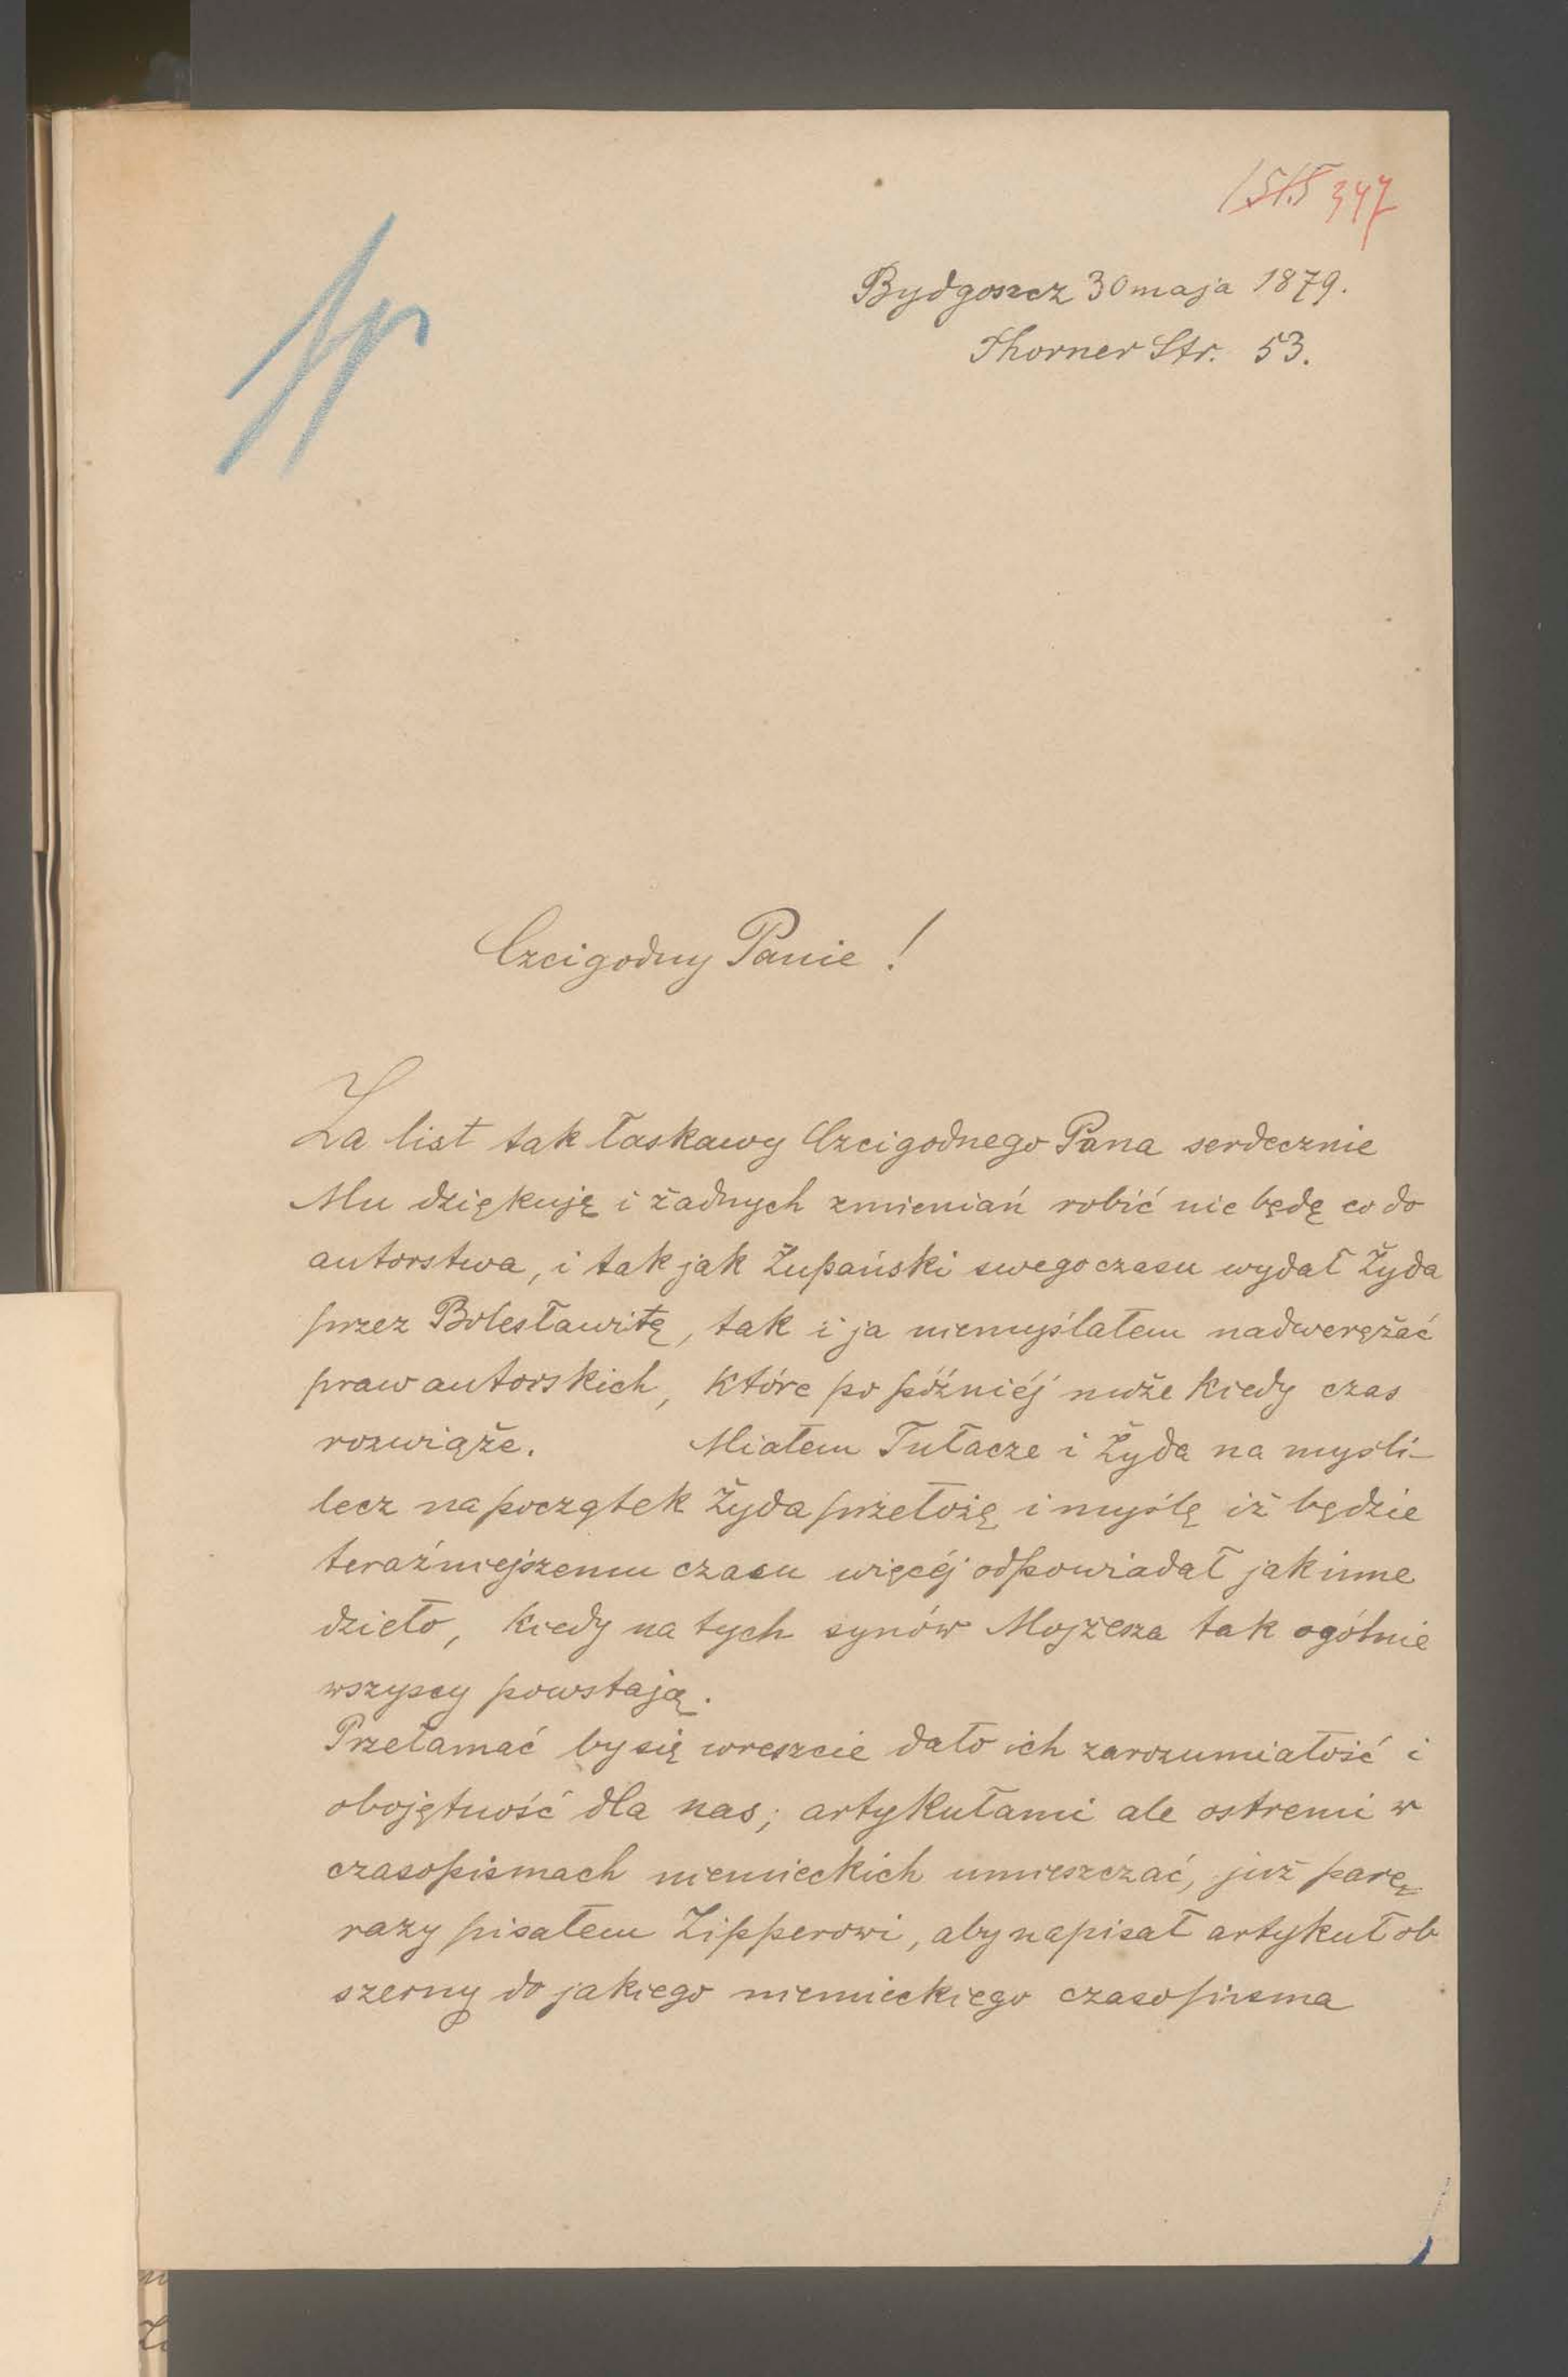 347
Bydgoszcz 30 maja 1879.
Thorner Str. 53.
Czcigodny Panie !
Za list tak łaskawy Czcigodnego Pana serdecznie
Mu dziękuję i żadnych zmieniań robić nie będę co do
autorstwa, i tak jak Żupański swego czasu wydał Żyda
przez Bolesławitę, tak i ja niemyślałem nadweręžać
praw autorskich, które po późniéj može kiedy czas
rozwiąže. Miałem Tułacze i Żyda na myśli –
lecz na początek Żyda przełožę i myślę iž będzie
teraźniejszemu czasu więcéj odpowiadał jak inne
dzieło, kiedy na tych synów Mojžesza tak ogólnie
wszyscy powstają.
Przełamać by się wreszcie dało ich zarozumiałość i
obojętność dla nas; artykułami ale ostremi w
czasopismach niemieckich umieszczać, już parę
razy pisałem Zipperowi, aby napisał artykuł ob
szerny do jakiego niemieckiego czasopisma